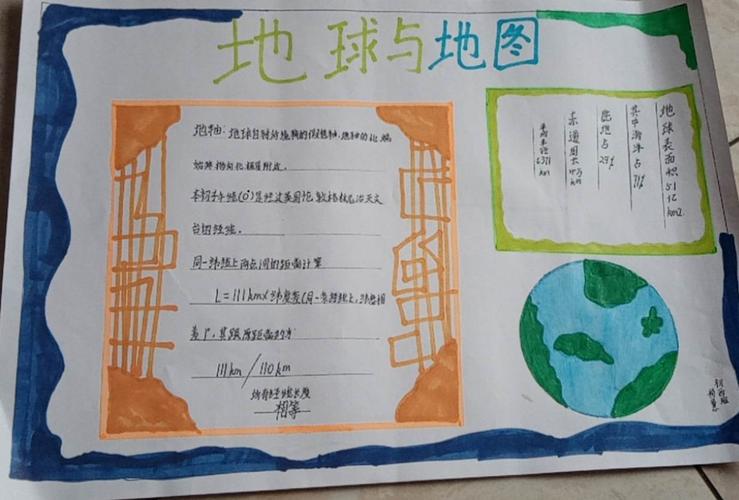 地球与地图
地轴：地球自转所绕转的假想轴，地轴的北端
始终指向北极星附近。
本初子午线(0°)是经过英国伦敦格林尼治天文
台的经线。
同一经线上两点间的距离计算
L=111km×纬度差(同一条经线上，纬度相
差1°，其
111km/110km
所有经线长度
相等
地球表面积5.1亿km2
其中海洋占71%
陆地占29%
赤道周长4万km
平均半径6371km